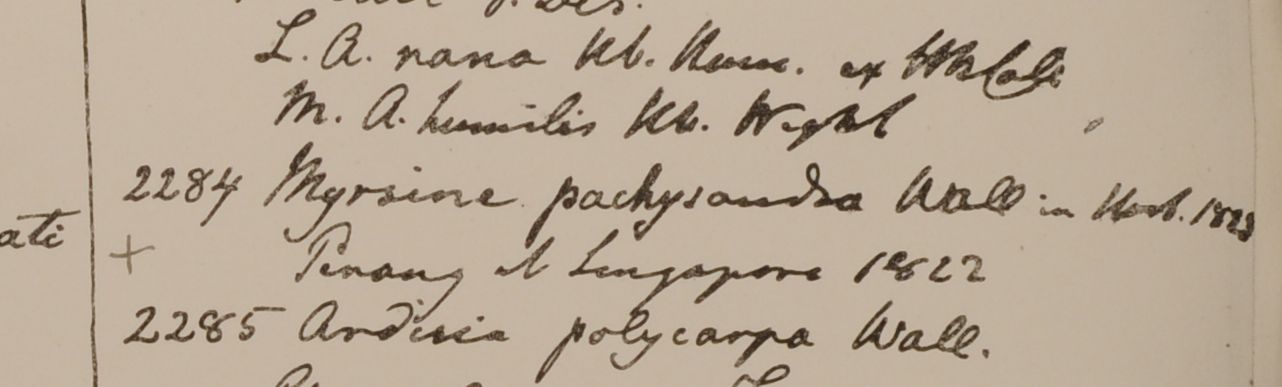 L. A. nana Hb. Ham.
M. A. humilis Hb. Wight
2284 Myrsine pachysandra Wall in Herb. 1823
ati
+ Penang et Singapore 1822
2285 Ardisia polycarpa Wall.